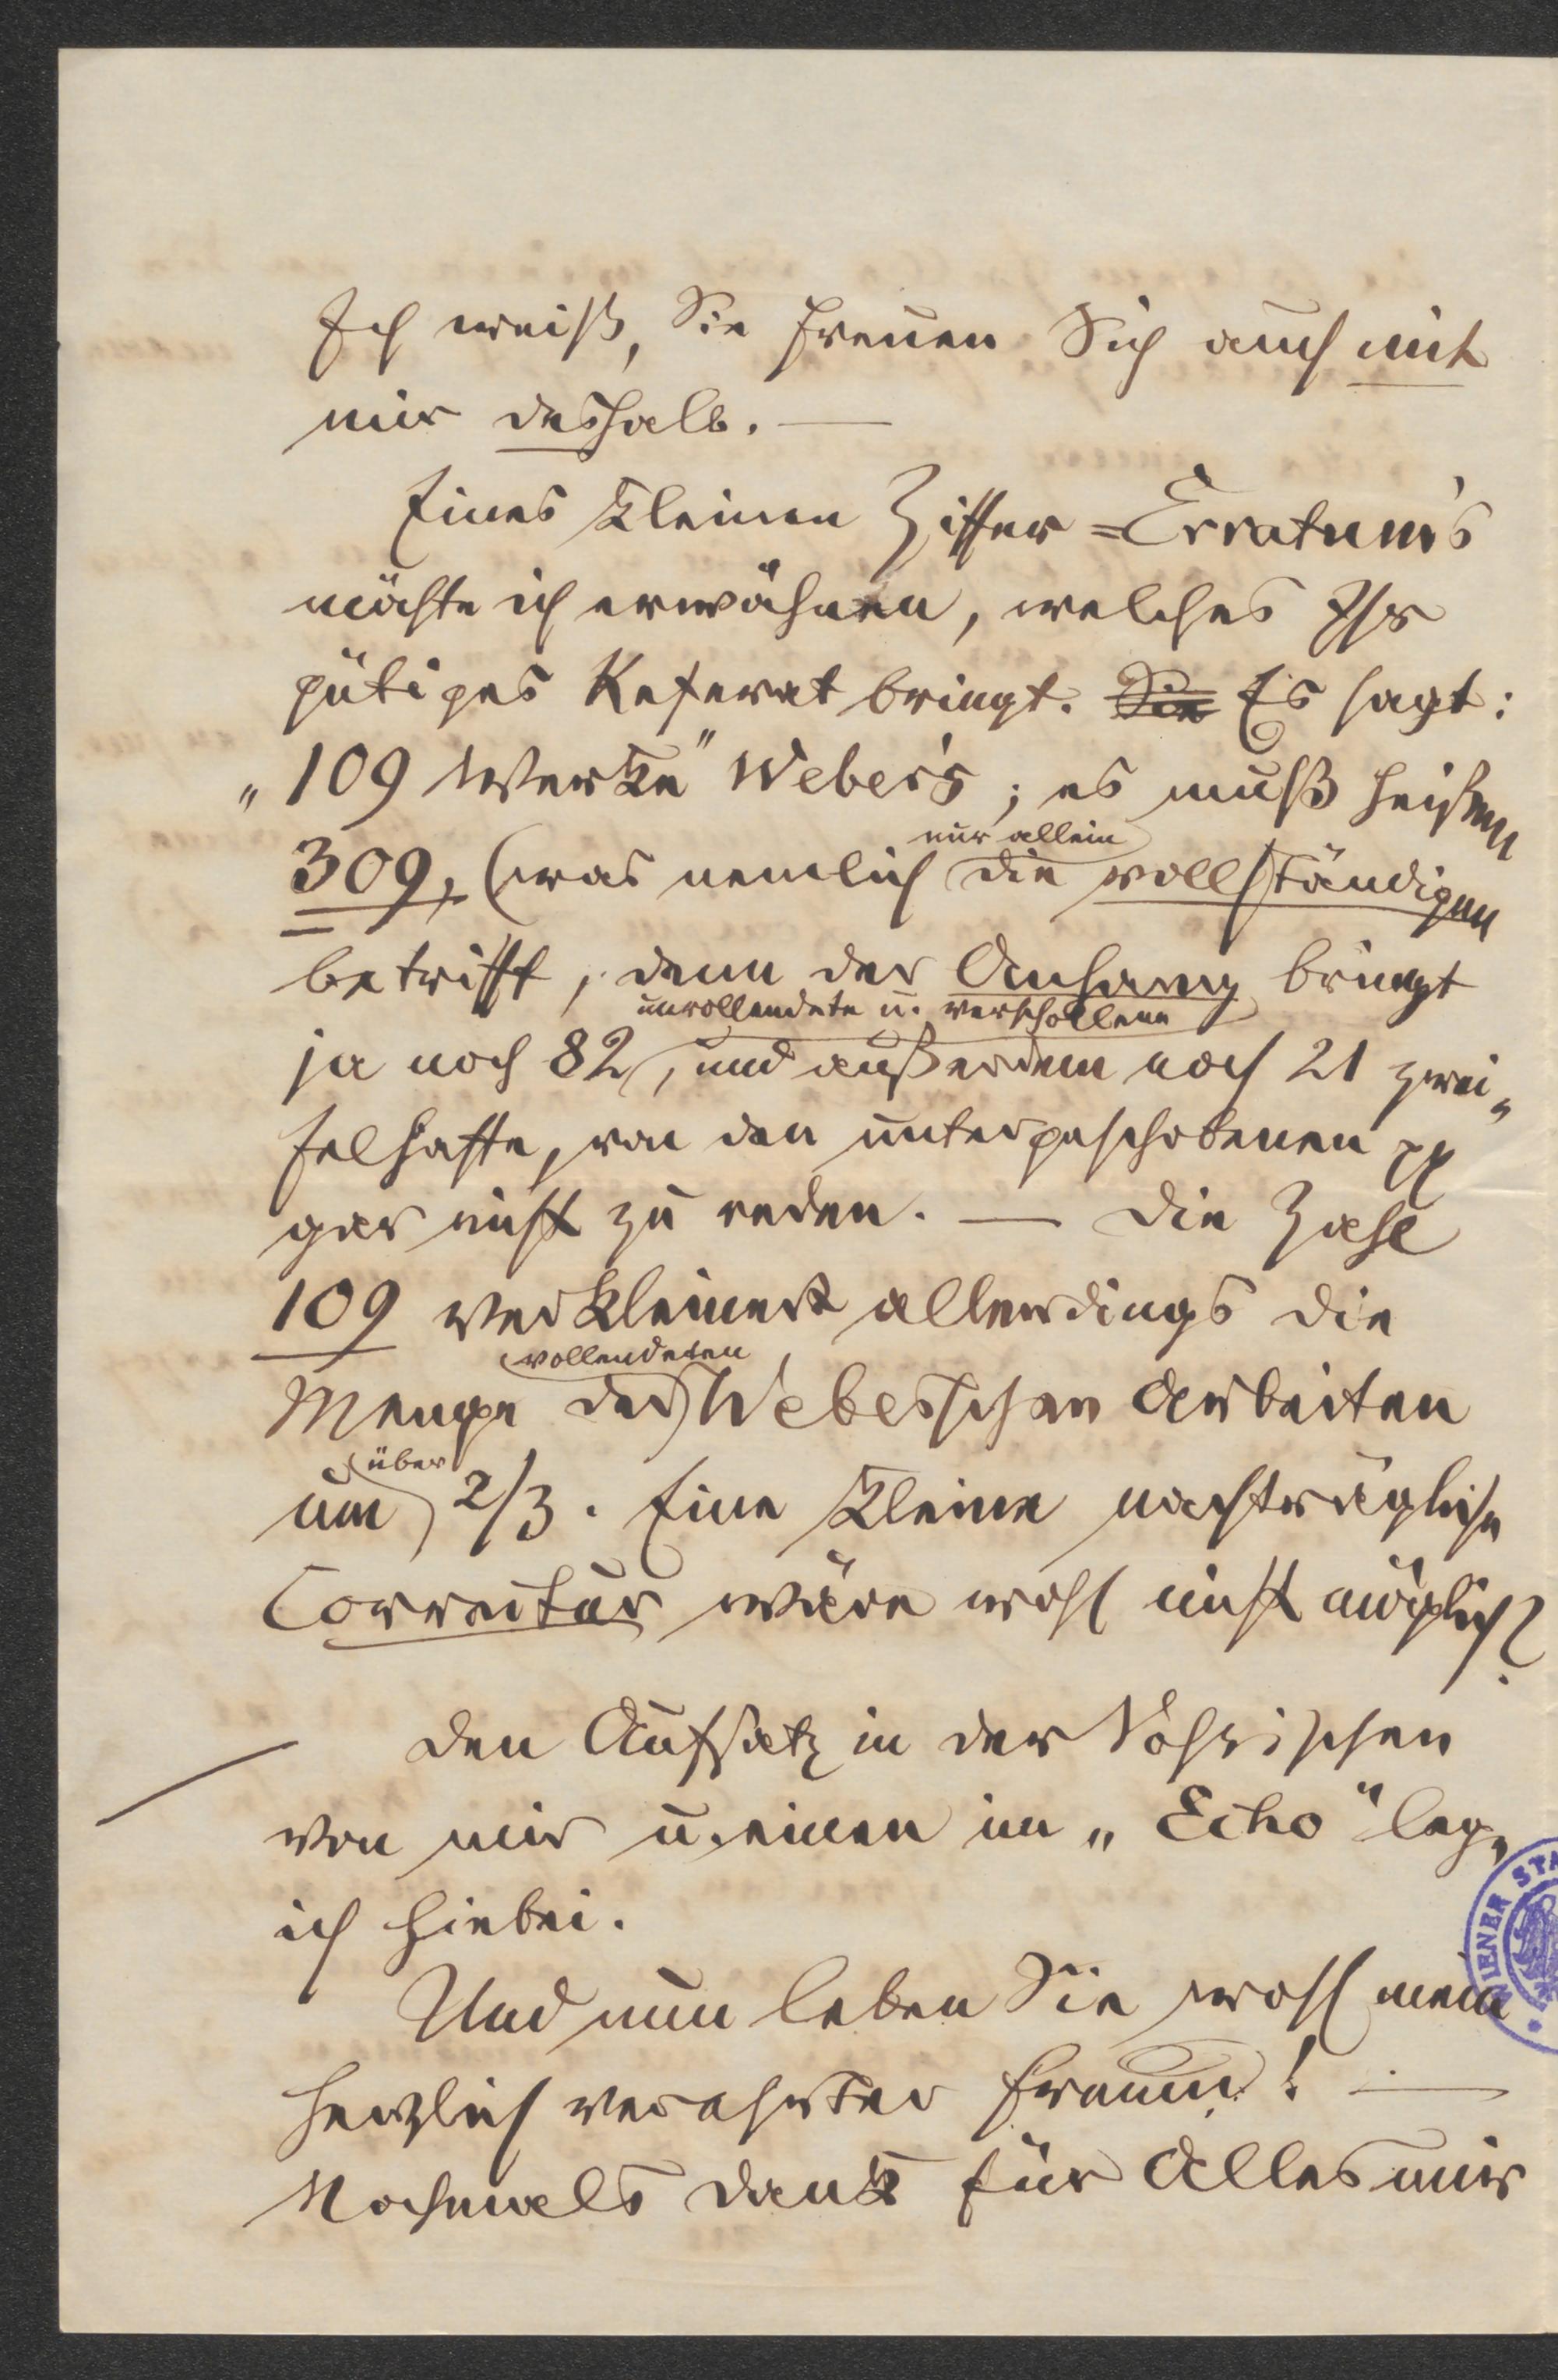 Ich weiß, Sie freuen Sich auch mit
mir deshalb. —
Eines kleinen Ziffer=Erratum's
möchte ich erwähnen, welches Ihr
gütiges Referat bringt. Sie Es sagt:
„109 Werke" Weber's; es muß heißen
nur allein
309, (was nemlich die vollständigen
betrifft, denn der Anhang bringt
unvollendete u. verschollene
ja noch 82, und außerdem noch 21 zwei„
felhafte, von den untergeschobenen pp
gar nicht zu reden. — Die Zahl
109 verkleinert allerdings die
vollendeten
Menge der Weberschen Arbeiten
über
um 2/3. Eine kleine nachträgliche
Correctur wäre wohl nicht möglich?
Den Aufsatz in der Voßischen
von mir u. einen im „Echo" lege
ich hiebei.
Und nun leben Sie wohl mein
herzlich verehrter Freund! —
Nochmals Dank für Alles mir
WIENER STA